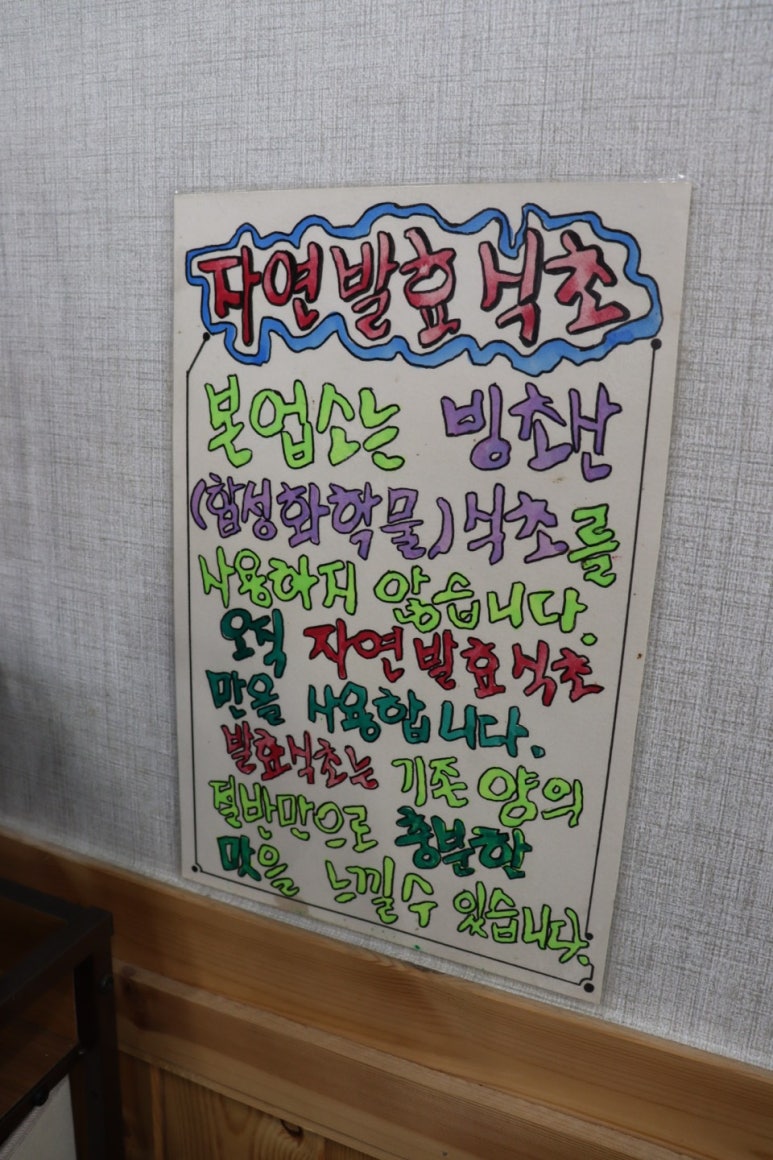 자연발효 식초
본 업소는 빙초산
(합성화학물) 식초를
사용하지 않습니다.
오직 자연발효식초
만을 사용합니다.
발효식초는 기존 양의
절반만으로 충분한
맛을 느낄수 있습니다.